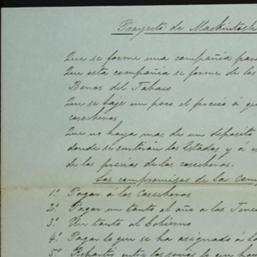 Proyecto de Mackintosh
Que se forme una compañia par
Que esta compañia se forme de los
Benos del Tabaco
Que se baje un poco el precio á q
cosecheros.
Que no haya mas de un deposito
donde se centran los Estados y á
de los precios de los cosecheros.
Los compromisos de la Com
1º Pagar á los cosecheros
2º Pagar un tanto al año a los Tene
3º Un tanto al Gobierno
4º Pagar lo que se ha asignado á lo
5º Repartir entre los socios lo que